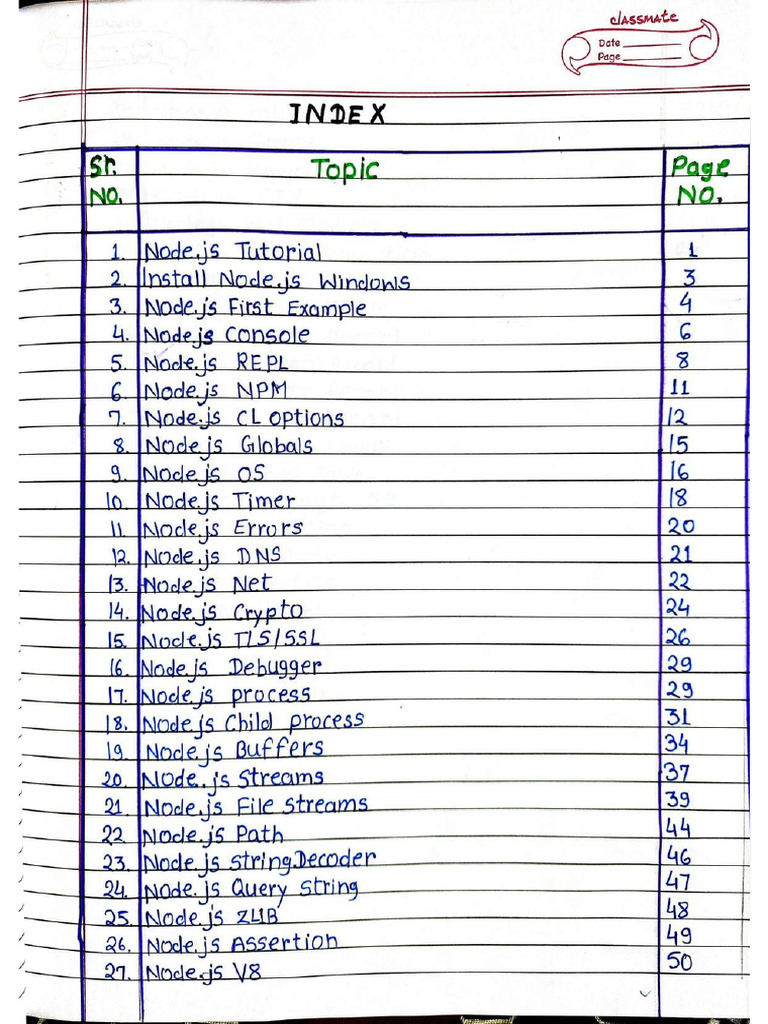 classmate
Date
Page
INDEX
Sr. No. Topic Page No.
1. Node.js Tutorial 1
2. Install Node.js Windows 3
3. Node.js First Example 4
4. Node.js Console 6
5. Node.js REPL 8
6. Node.js NPM 11
7. Node.js CL options 12
8. Node.js Globals 15
9. Node.js OS 16
10. Node.js Timer 18
11. Node.js Errors 20
12. Node.js DNS 21
13. Node.js Net 22
14. Node.js Crypto 24
15. Node.js TLS/SSL 26
16. Node.js Debugger 29
17. Node.js process 29
18. Node.js Child process 31
19. Node.js Buffers 34
20. Node.js Streams 37
21. Node.js File streams 39
22 Node.js Path 44
23. Node.js String.Decoder 46
24. Node.js Query String 47
25. Node.js ZLIB 48
26. Node.js Assertion 49
27. Node.js V8 50